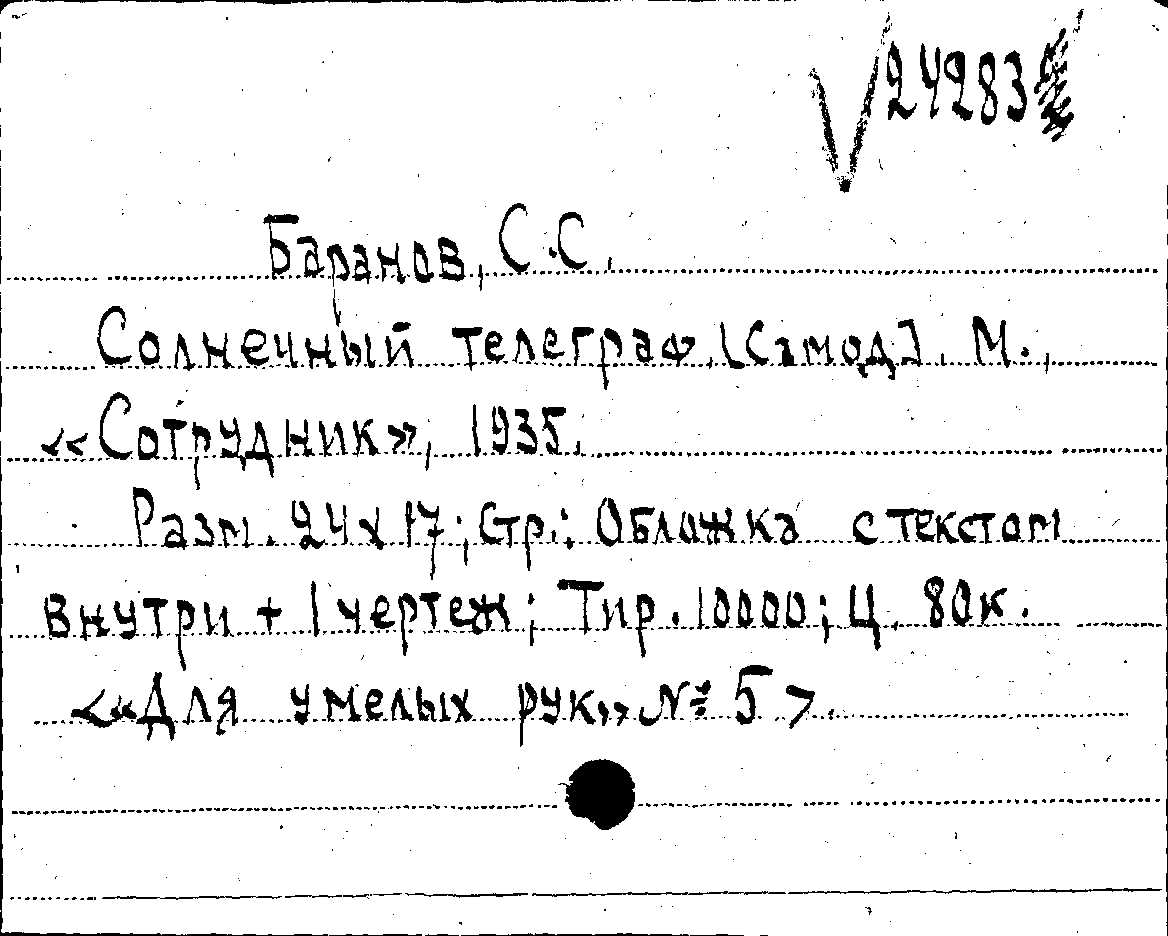 24283
Баранов, С.С.
Солнечный телеграф. [Самод]. М.,
«Сотрудник», 1935.
Разм. 24х17; Стр.: Обложка с текстом
внутри + 1 чертеж; Тир. 10000; Ц. 80к.
<«Для умелых рук» № 5>.